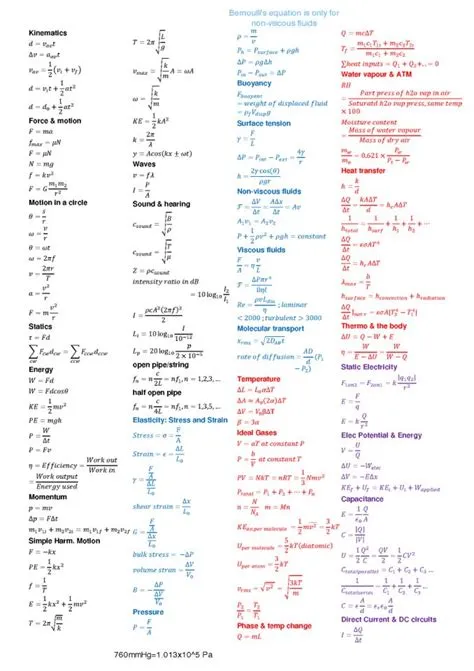 Kinematics
d = v_av t
Δv = a_av t
v_av = 1/2 (v_i + v_f)
d = v_i t + 1/2 at²
d = d_o + 1/2 at²
Force & motion
F = ma
f_max = μN
F = μN
N = mg
f = kv²
F = G m₁m₂/r²
Motion in a circle
θ = s/r
ω = v/r
θ = ωt
ω = 2πf
v = 2πr/T
a = v²/r
F = m v²/r
Statics
τ = Fd
∑ F_cw d_cw = ∑ F_ccw d_ccw
Energy
W = Fd
W = Fdcosθ
KE = 1/2 mv²
PE = mgh
P = W/t
P = Fv
η = Efficiency = Work out/Work in
= Work output/Energy used
Momentum
p = mv
Δp = FΔt
m₁v₁i + m₂v₂i = m₁v₁f + m₂v₂f
Simple Harm. Motion
F = −kx
PE = 1/2 kx²
f = 1/T
E = 1/2 kx² + 1/2 mv²
T = 2π √(m/k)
T = 2π √(L/g)
v_max = √(k/m) A = ωA
ω = √(k/m)
KE = 1/2 kA²
k = 2π/λ
y = Acos(kx ± ωt)
Waves
v = fλ
I = P/A
Sound & hearing
c_sound = √(B/ρ)
c_sound = √(T/μ)
Z = ρc_sound
intensity ratio in dB
= 10 log₁₀ I₂/I₁
I = ρcA²(2πf)²/2
L_i = 10 log₁₀ I/10⁻¹²
L_p = 20 log₁₀ P/2 × 10⁻⁵
open pipe/string
f_n = n c/2L = nf₁, n = 1,2,3, …
half open pipe
f_n = n c/4L = nf₁, n = 1,3,5, …
Elasticity: Stress and Strain
Stress = σ = F/A
Strain = ϵ = ΔL/L_o
γ = F/A / ΔL/L_o
shear strain = Δx/L_o
G = F/A / Δx/L_o
bulk stress = −ΔP
volume strain = ΔV/V_o
B = − ΔP / ΔV/V_o
Pressure
P = F/A
760mmHg=1.013x10^5 Pa
Bernoulli's equation is only for
non-viscous fluids
ρ = m/v
P_h = P_surface + ρgh
ΔP = ρgΔh
P_in − P_out = ΔP
Buoyancy
F_buoyancy
= weight of displaced fluid
= ρ_f V_disp g
Surface tension
γ = F/L
ΔP = P_in − P_out = 4γ/r
h = 2γ cos(θ)/ρgr
Non-viscous fluids
ℱ = ΔV/Δt = AΔx/Δt = Av
A₁v₁ = A₂v₂
P + 1/2 ρv² + ρgh = constant
Viscous fluids
F/A = η v/L
ℱ = ΔPπr⁴/8ηl
; laminar
< 2000 ; turbulent > 3000
Molecular transport
x_rms = √(2D_AB t)
rate of diffusion = AD/d (P₁
− P₂)
Temperature
ΔL = L_o αΔT
ΔA = A_o(2α)ΔT
ΔV = V_o βΔT
β = 3α
Ideal Gases
V = aT at constant P
P = b/V at constant T
PV = NkT = nRT = 1/3 Nmv²
P_total = P₁ + P₂ + ⋯ + P_n
n = N/N_A m = Mn
KE_av.per molecule = 1/2 mv² = 3/2 kT
U_per molecule = 5/2 kT(diatomic)
U_per atom = 3/2 kT
v_rms = √v² = √(3kT/m)
P₂/P₁ = T₂/T₁
Phase & temp change
Q = mL
Q = mcΔT
T_f = m₁c₁T₁i + m₂c₂T₂i / m₁c₁ + m₂c₂
∑heat inputs = Q₁ + Q₂+.. = 0
Water vapour & ATM
RH
= Part press of h2o vap in air / Saturatd h2o vap press, same temp
× 100
Moisture content
= Mass of water vapour / Mass of dry air
m_w/m_a = 0.621 × P_w/P_t − P_w
Heat transfer
h = k/d
ΔQ/Δt = kAΔT/d = h_c AΔT
1/h_total = 1/h_surf + 1/h₁ + 1/h₂ + ⋯
ΔQ/Δt = εσAT⁴
ΔQ/Δt = h_c AΔT
λ_max = b/T
h_surface = h_convection + h_radiation
Thermo & the body
ΔU = Q − W + E
η = W/E − ΔU = W/W − Q
Static Electricity
E = F/q
E = k Q/r²
Elec Potential & Energy
V = U/Q
ΔU = −W_elec
ΔV = −EΔx
KE_f + U_f = KE_i + U_i + W_applied
Capacitance
C = |Q|/|V|
U = 1/2 Q²/C = QV/2 = 1/2 CV²
C_total parallel = C₁ + C₂ + C₃ …
1/C_total series = 1/C₁ + 1/C₂ + 1/C₃ …
Direct Current & DC circuits
I = ΔQ/Δt